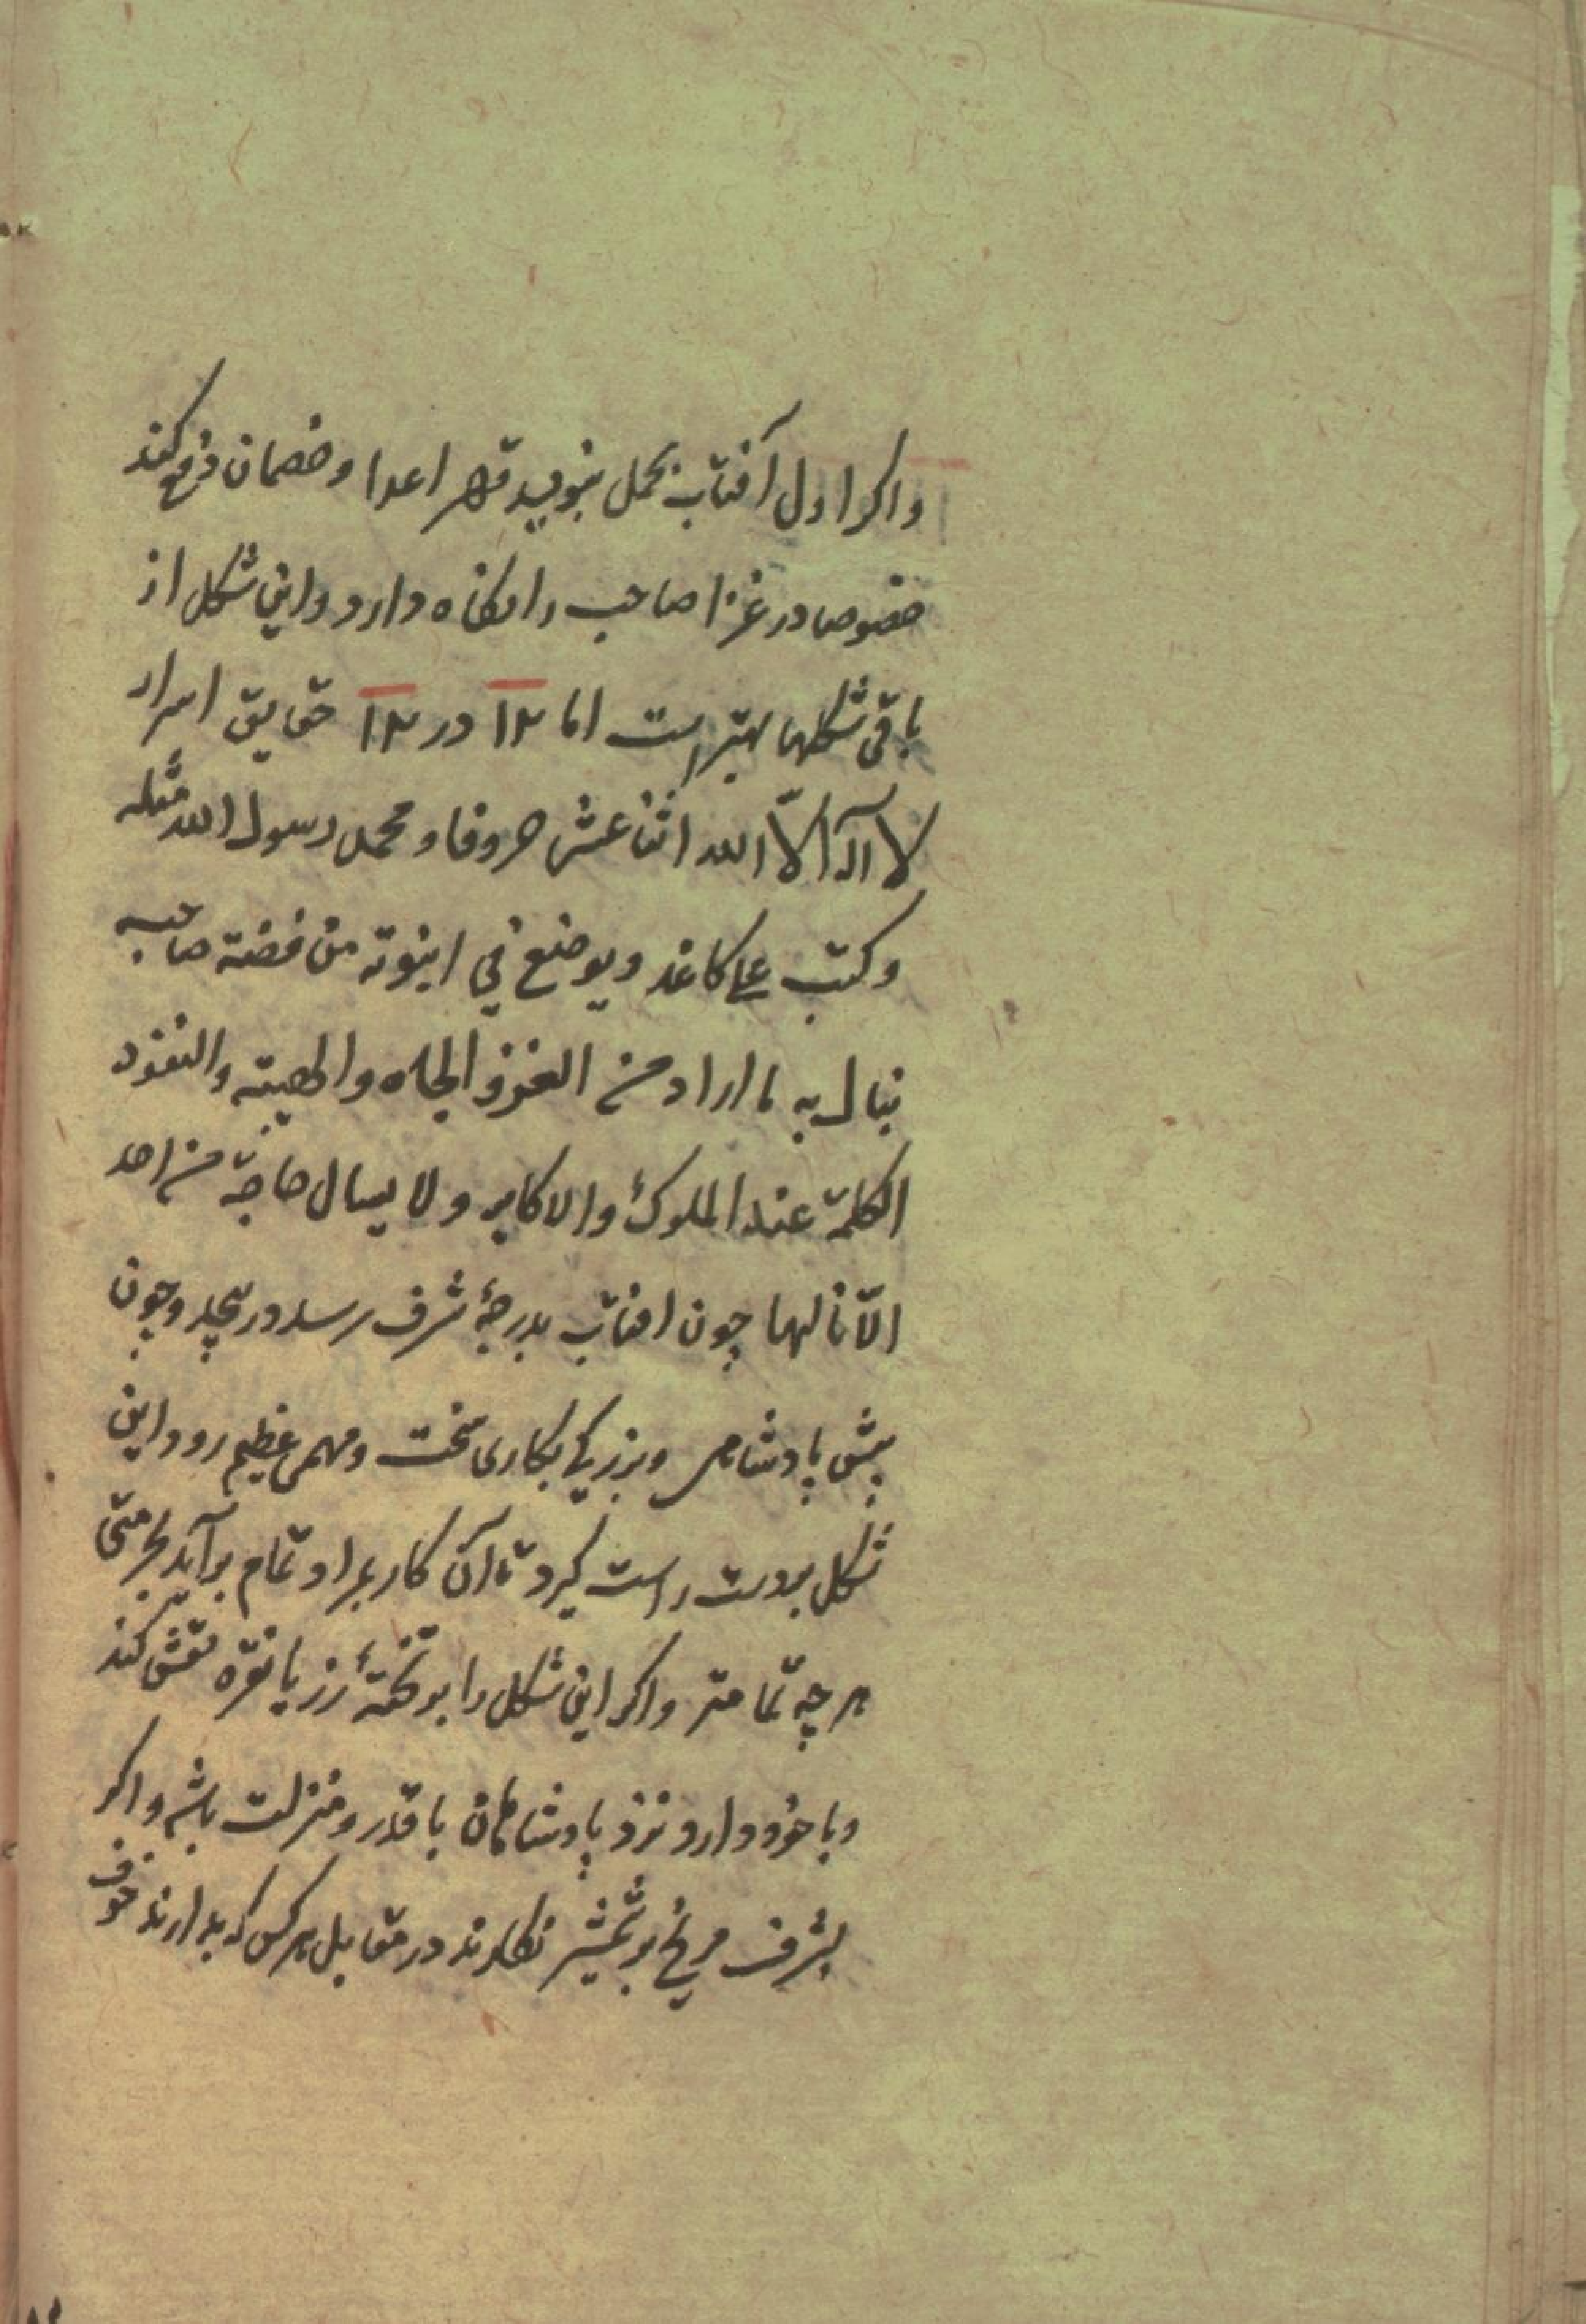 واكر اول آفتاب بحمل بنويسد قهر اعدا و خصمان دفع كند
خصوصا در غزا صاحب را نكاه دارد و اين شكل از
باقى شكلها بهتر است اما ١٢ در ١٢ حقايق اسرار
لا اله الا الله اثنا عشر حروفا و محمد رسول الله مثله
وكتب على كاغد ويوضع في انبوته من فضة صاحبه
ينال به ما اراد من العز والجاه والهيبة والنفوذ
الكلمة عند الملوك والاكابر ولا يسال حاجة من احد
الا نالها چون افتاب بدرجۀ شرف رسد در پيچد و چون
پيش پادشاهى و بزركى بكارى سخت و مهمى عظيم رود اين
شكل بدست راست كيرد تا آن كار بمراد تمام برآيد بحرمتى
هر چه تمامتر واكر اين شكل را بر تختۀ زر يا نقره نقش كند
و با خود دارد نزد پادشاهان با قدر و منزلت باشد واكر
بشرف مريخ بر شمشير نكارند در مقابل هر كس كه بدارند خوف